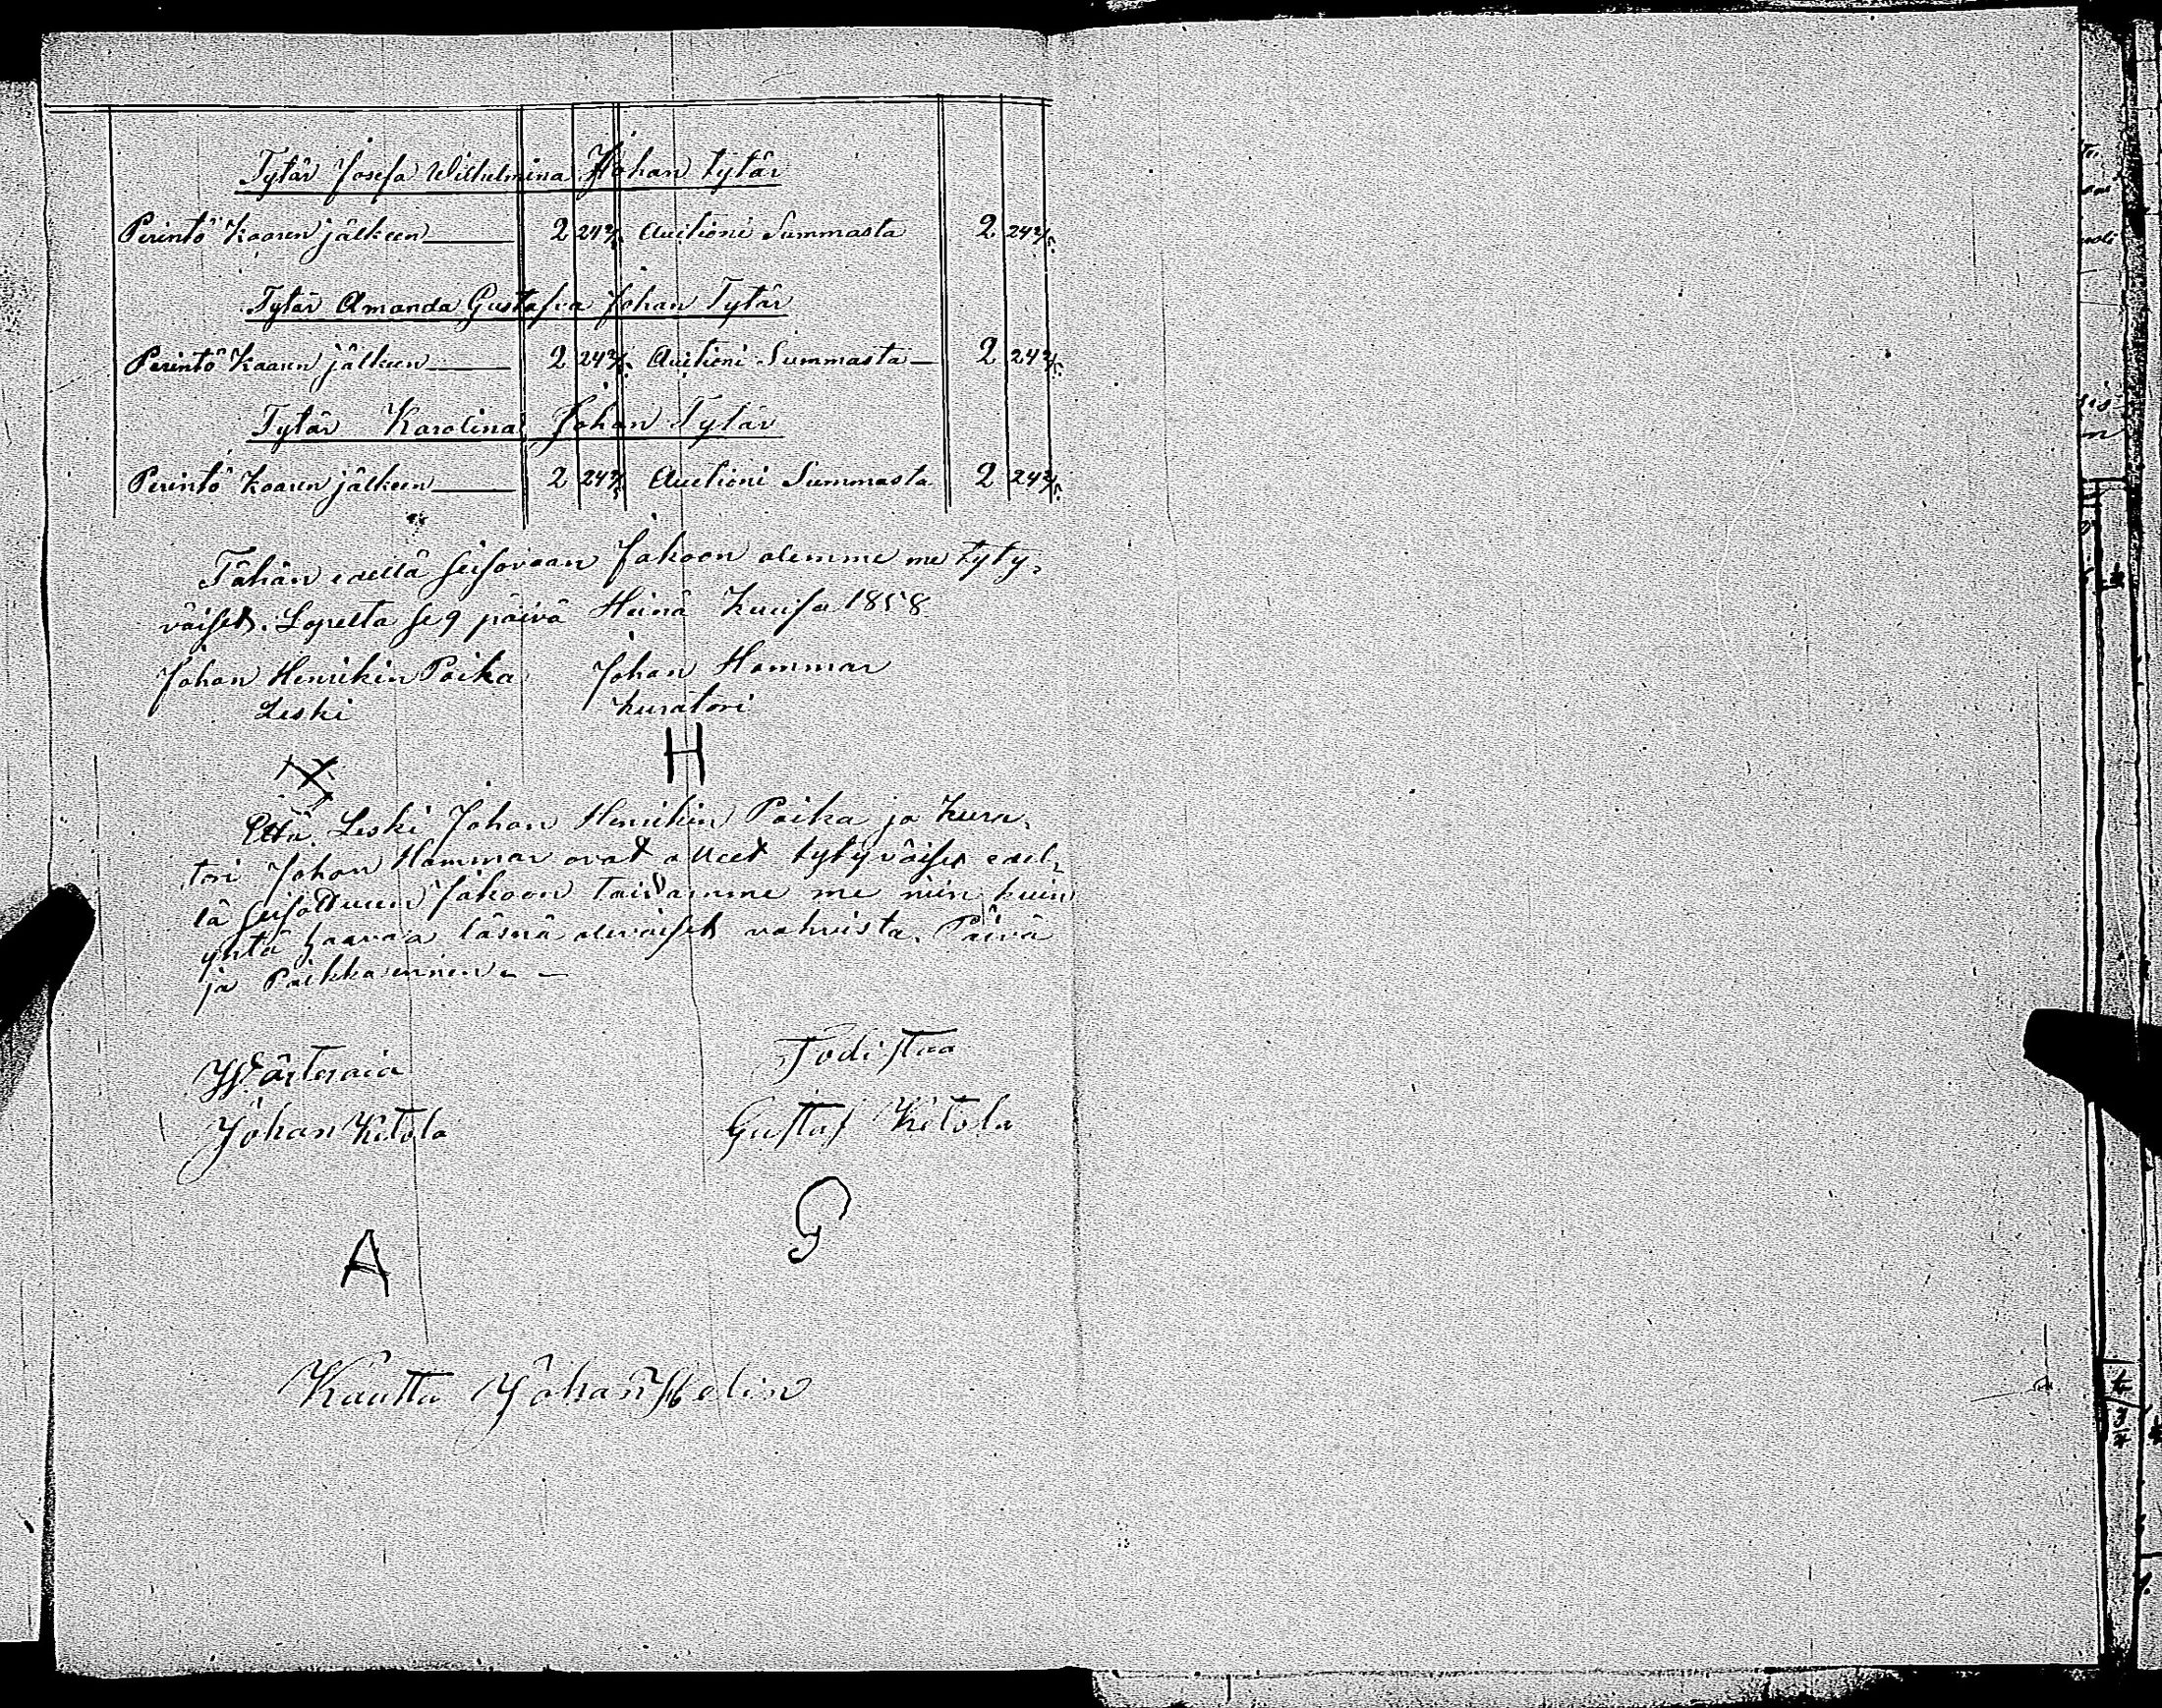 Tytär Josefa Wilhelmina Johan tytär
Perintö Kaaren jälkeen 2 24 2/5 Auctioni Summasta 2 24 2/5
Tytär Amanda Gustafva Johan Tytär
Perintö Kaaren jälkeen 2 24 2/5 Auctioni Summasta 2 24 2/5
Tytär Karolina Johan Tytär
Perintö Kaaren jälkeen 2 24 2/5 Auctioni Summasta 2 24 2/5
Tähän edellä seisovaan Jakoon olemme me tyty-
väiset. Lopella se 9 päivä Heinä Kuusa 1858
Johan Henrikin Poika Johan Hammar
Leski Kuratori
X H
Että Leski Johan Henrikin Poika ja Kura-
tori Johan Hammar ovat olleet tytyväiset edel-
lä seisottuun Jakoon taidamme me niin kuin
yhtä haavaa läsnä olevaiset vahvista. Päivä
ja Paikka ennen
Wärteraia Todistaa
Johan Kitola Gustaf Kitola
A G
Kautta Johan Helin